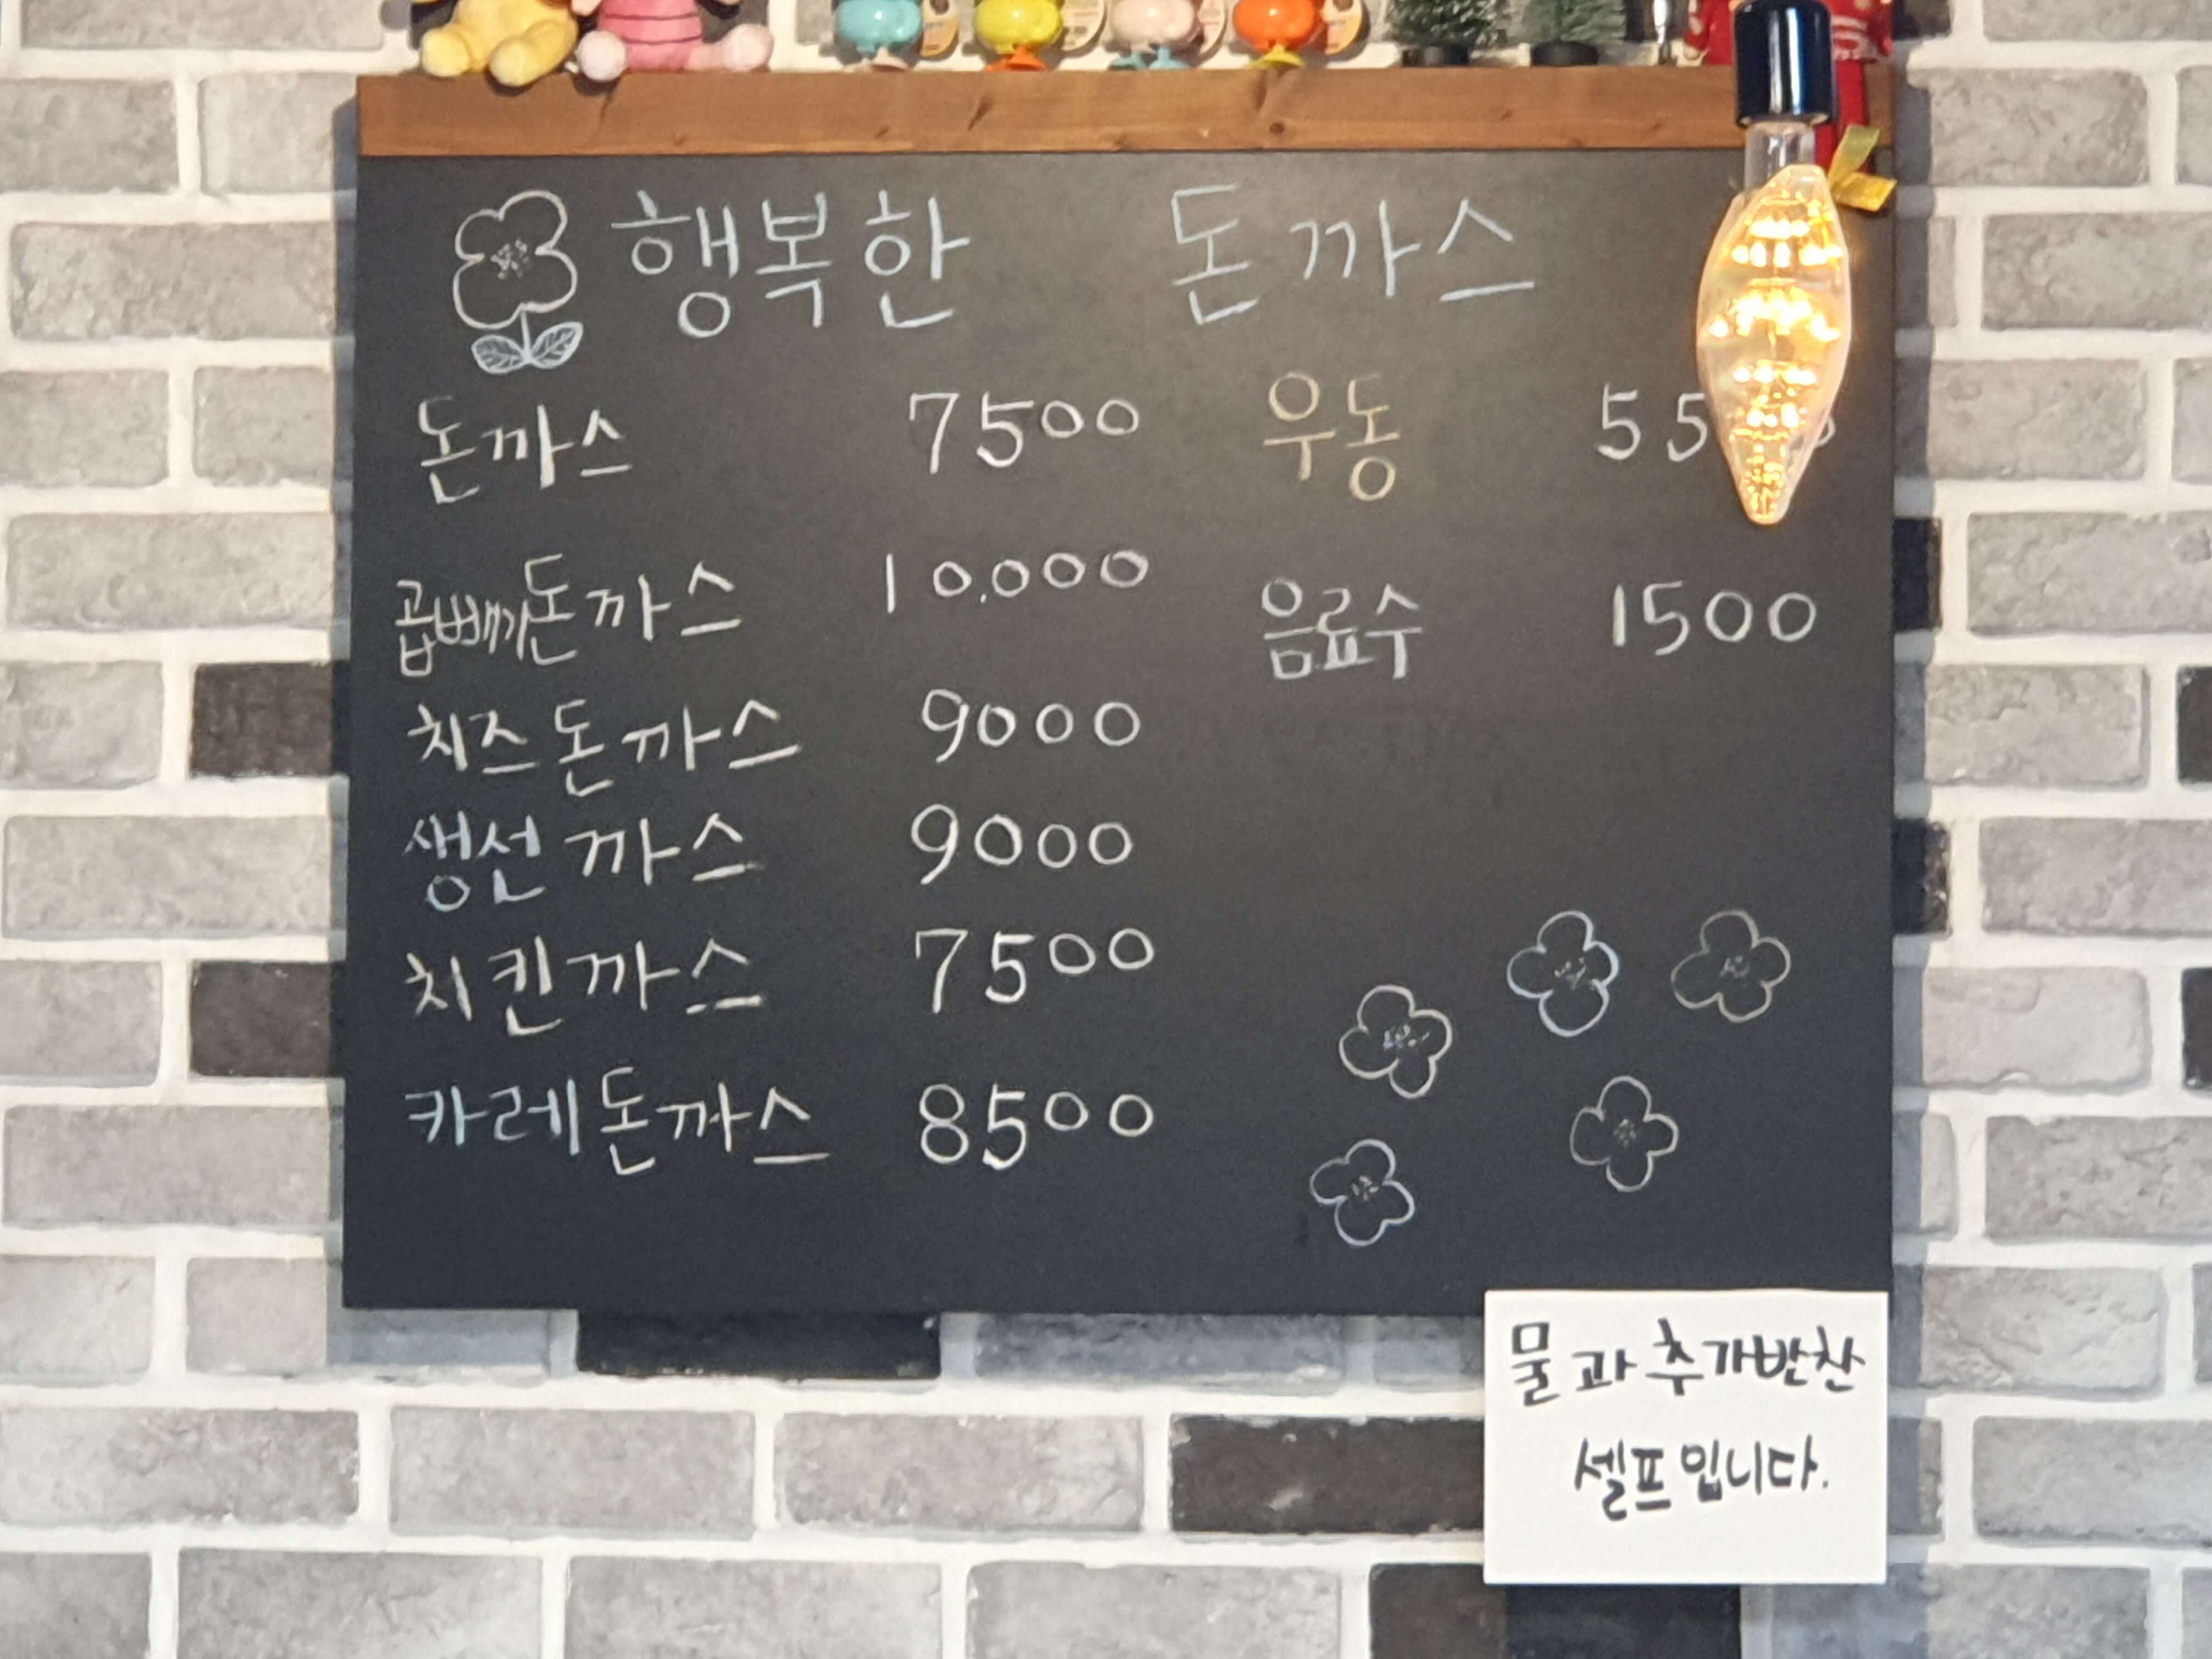 행복한 돈까스
돈까스 7500
곱빼기돈까스 10.000
치즈돈까스 9000
생선까스 9000
치킨까스 7500
카레돈까스 8500
우동
음료수 1500
물과 추가반찬
셀프입니다.